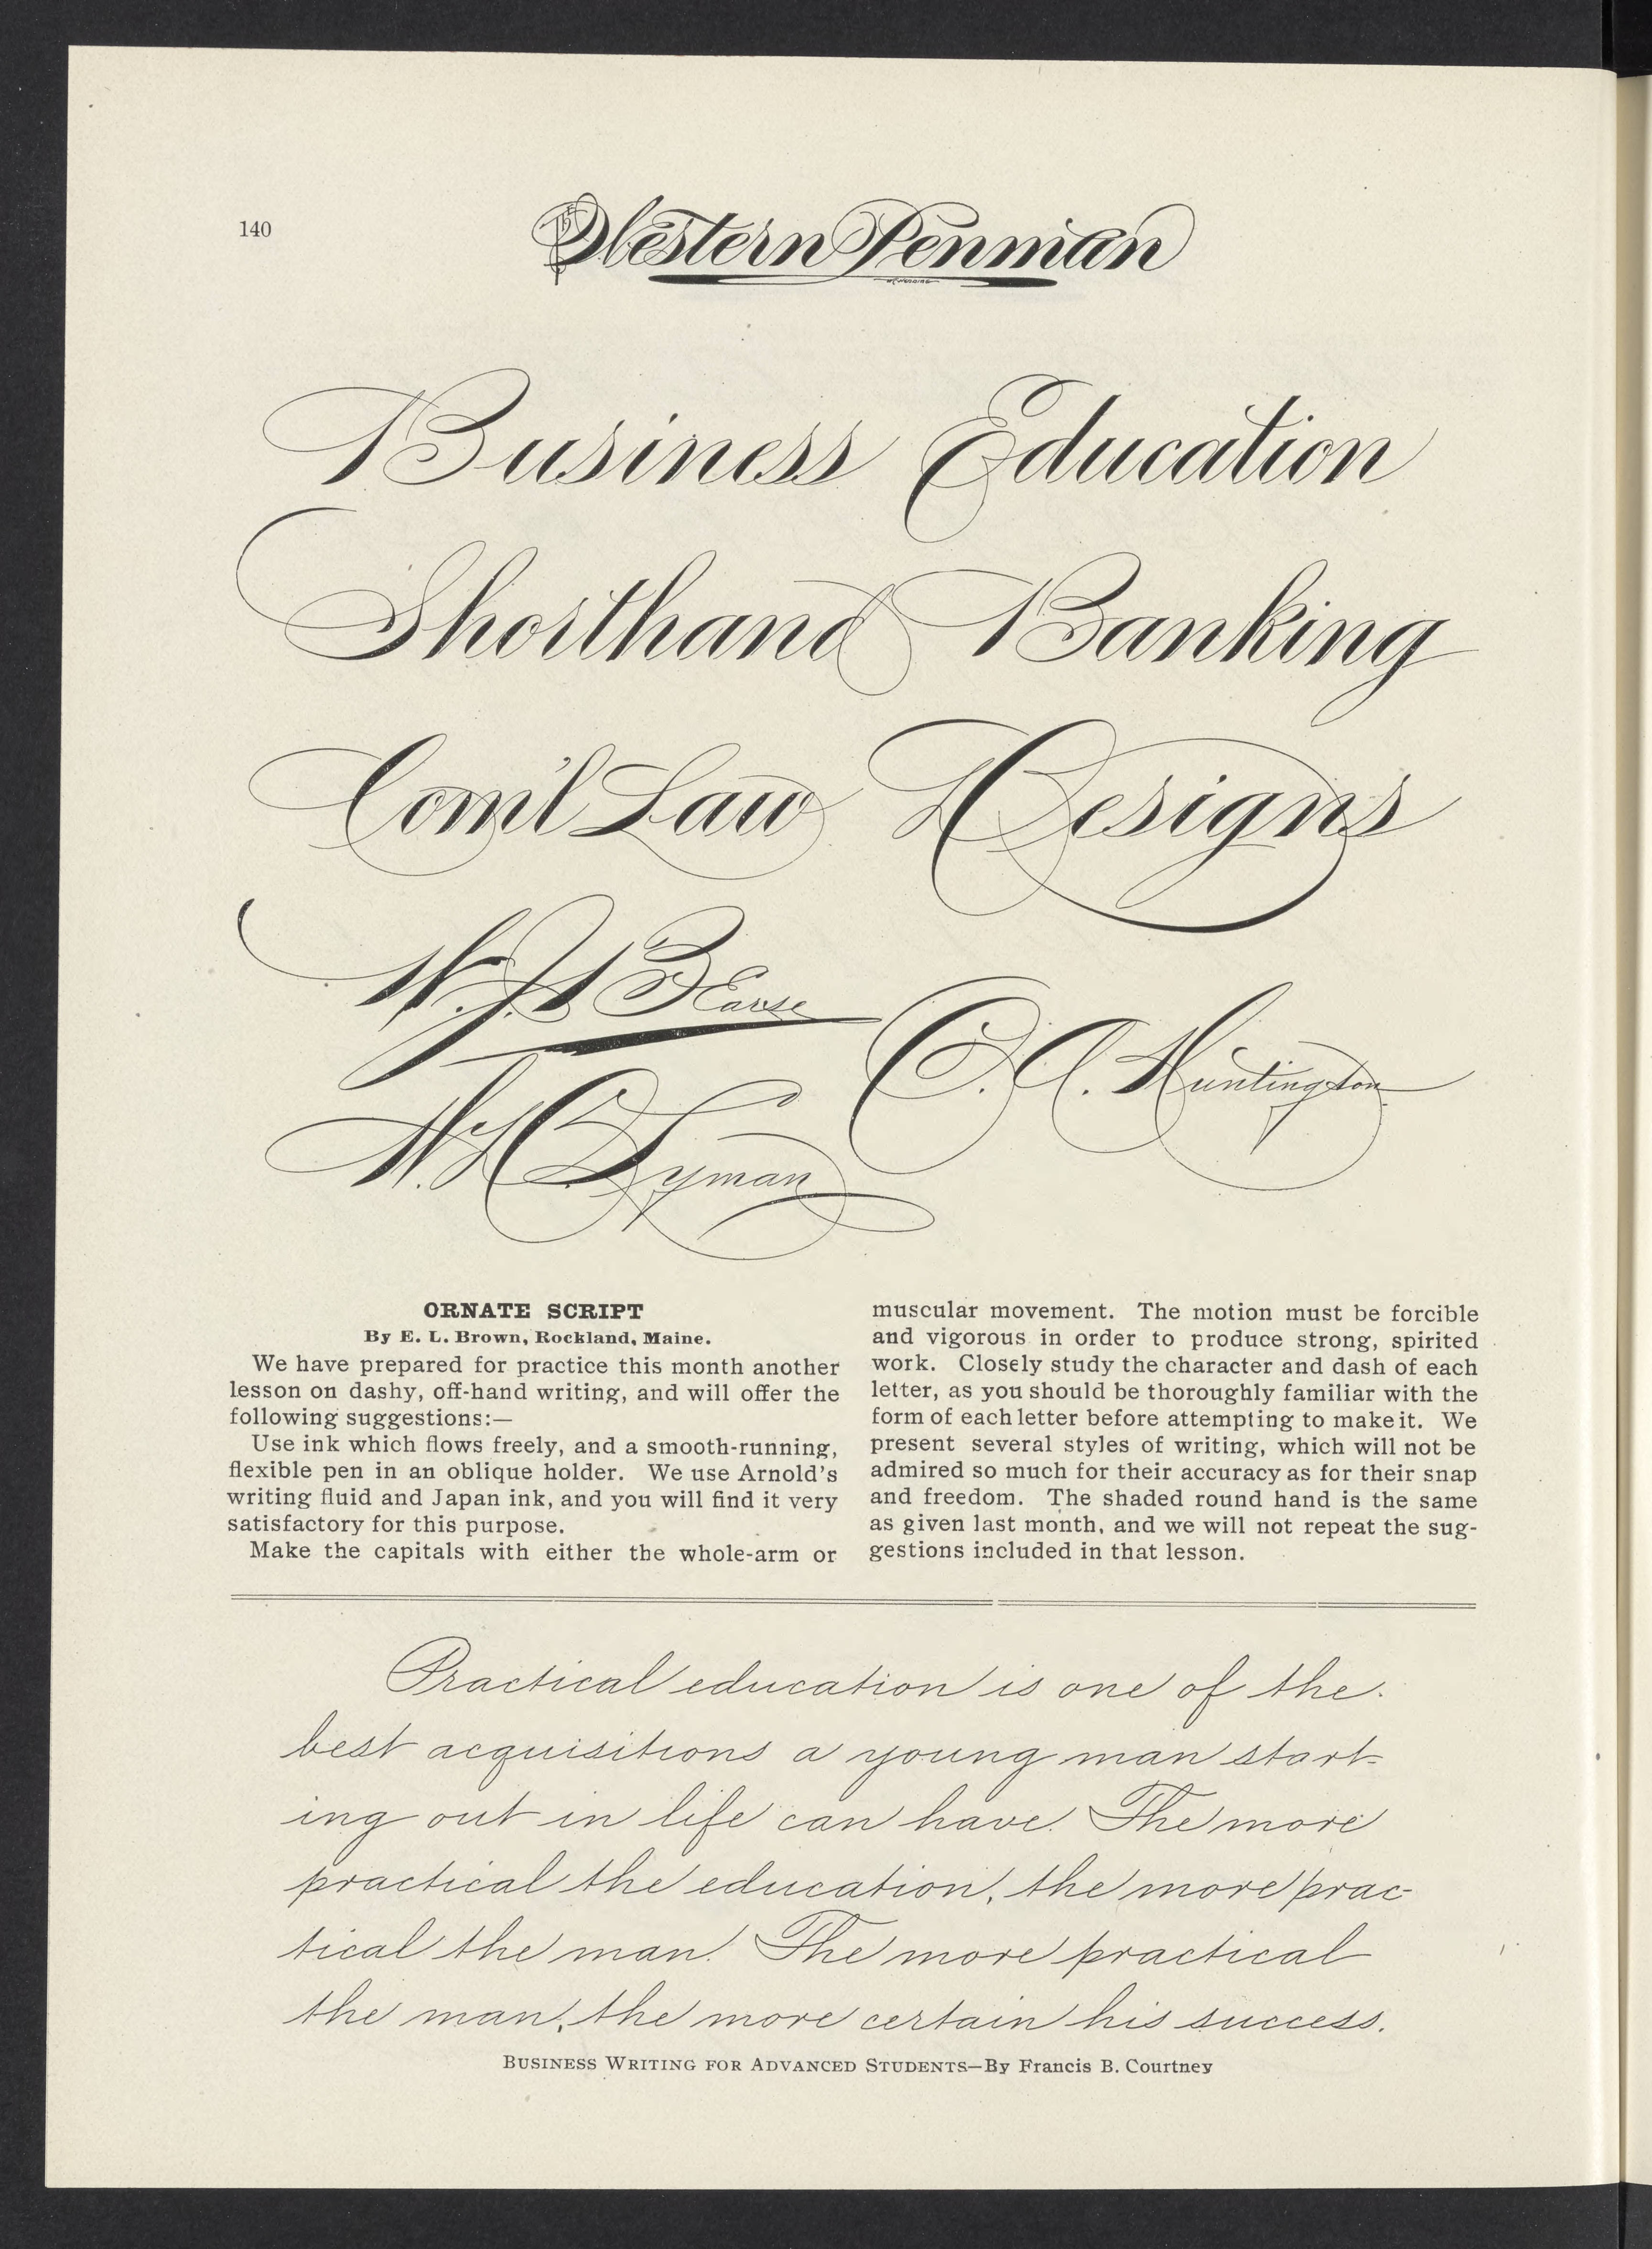 140
Western Penman
Business Education
Shorthand Banking
Com'l Law Designs
W. J. Bearse
C. A. Huntington
W. H. Lyman
ORNATE SCRIPT
By E. L. Brown, Rockland, Maine.
We have prepared for practice this month another
lesson on dashy, off-hand writing, and will offer the
following suggestions:—
Use ink which flows freely, and a smooth-running,
flexible pen in an oblique holder. We use Arnold's
writing fluid and Japan ink, and you will find it very
satisfactory for this purpose.
Make the capitals with either the whole-arm or
muscular movement. The motion must be forcible
and vigorous in order to produce strong, spirited
work. Closely study the character and dash of each
letter, as you should be thoroughly familiar with the
form of each letter before attempting to make it. We
present several styles of writing, which will not be
admired so much for their accuracy as for their snap
and freedom. The shaded round hand is the same
as given last month, and we will not repeat the sug-
gestions included in that lesson.
Practical education is one of the
best acquisitions a young man start-
ing out in life can have. The more
practical the education, the more prac-
tical the man. The more practical
the man, the more certain his success.
BUSINESS WRITING FOR ADVANCED STUDENTS—By Francis B. Courtney